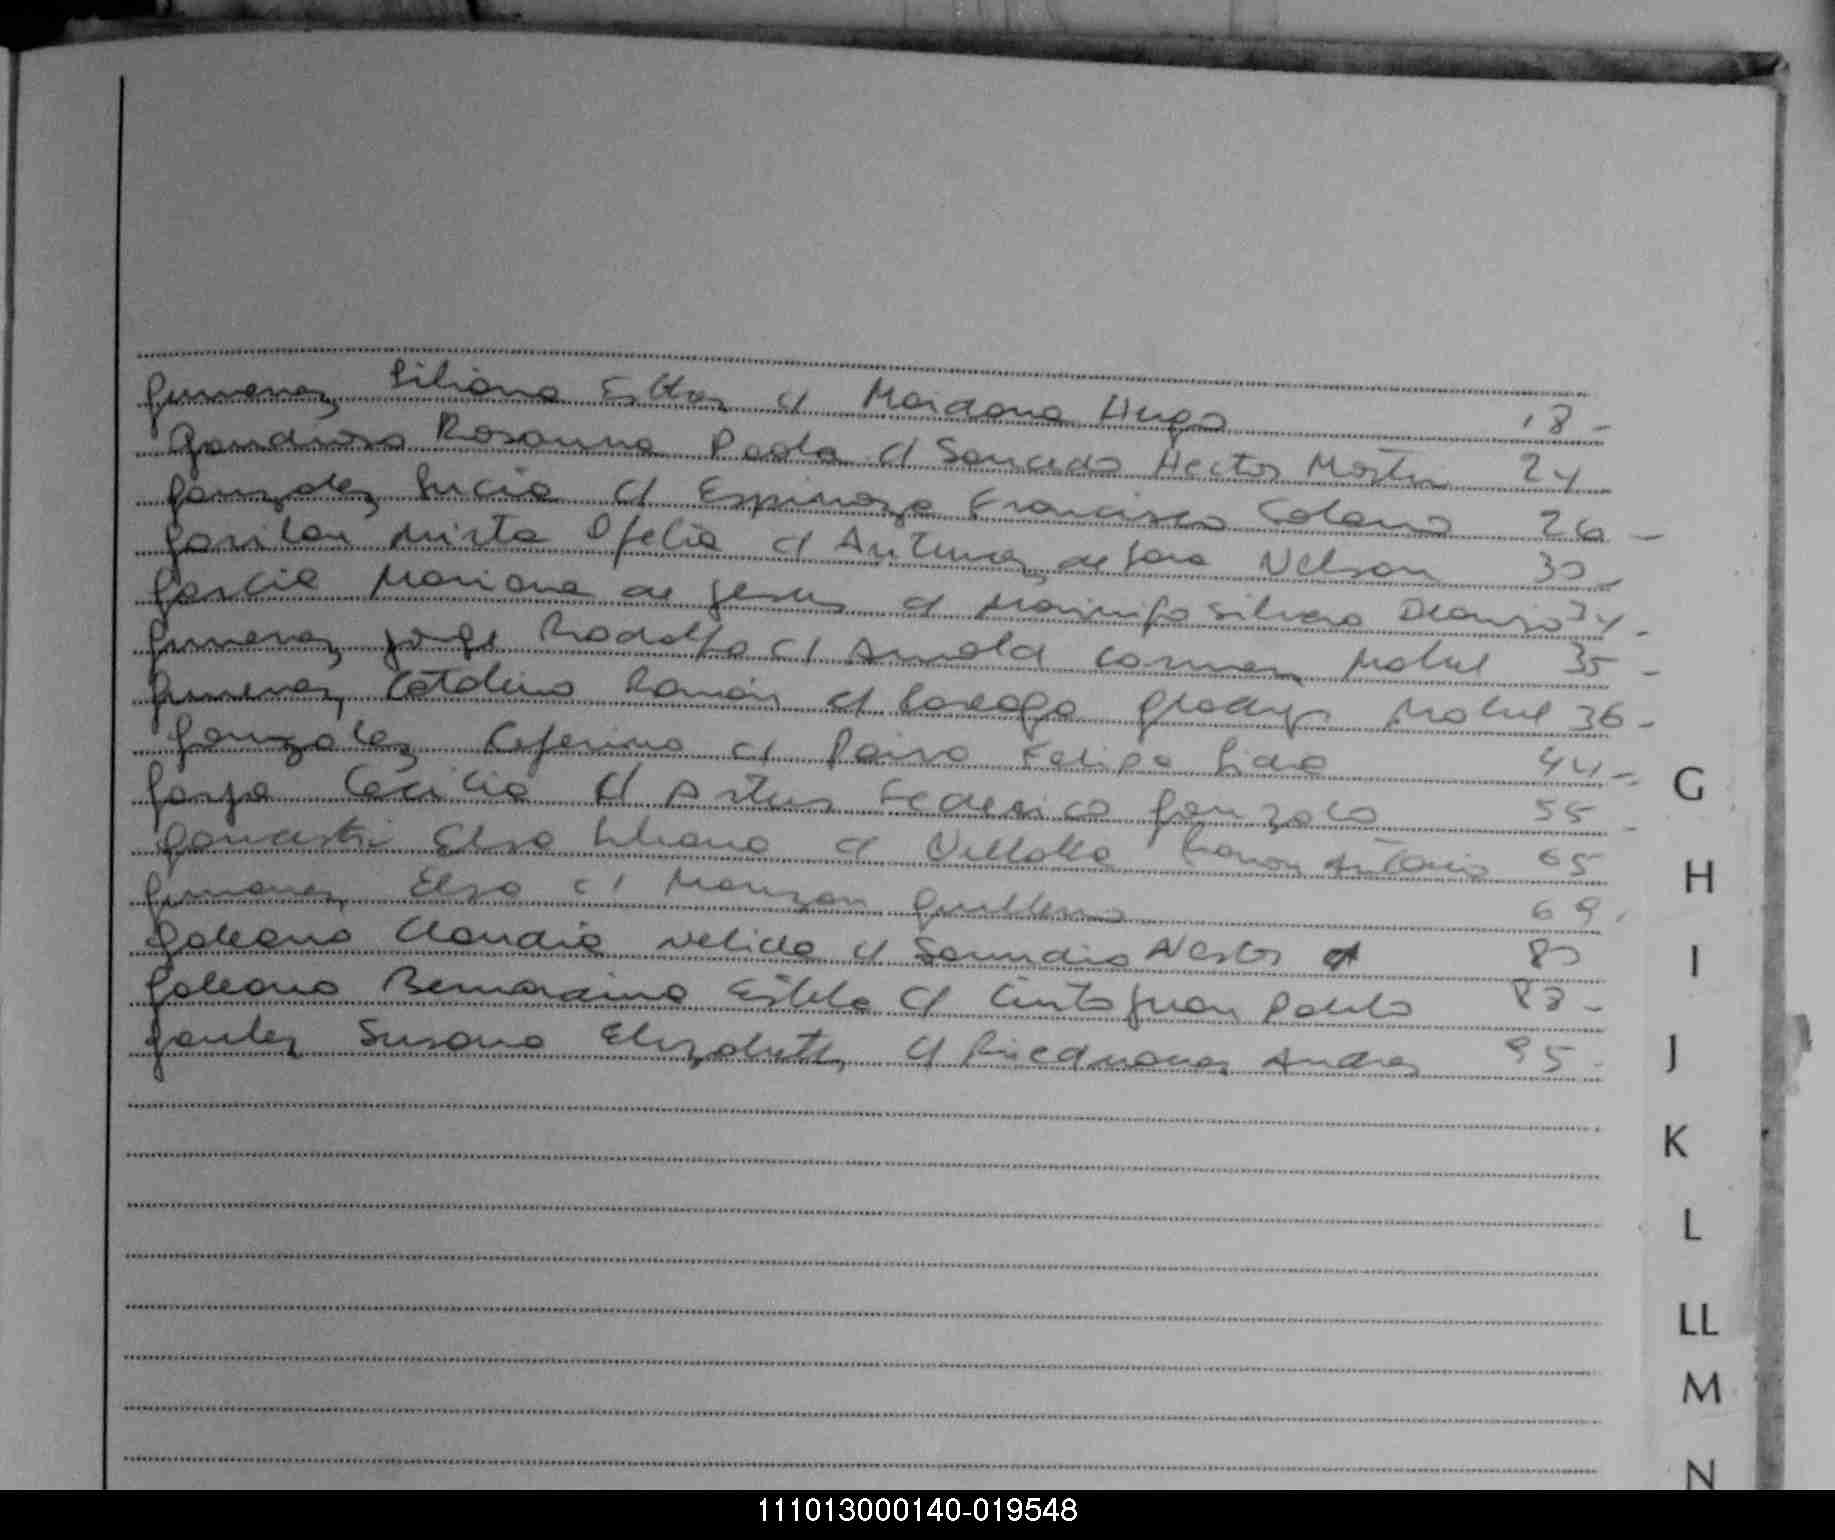 Gimenez Liliana Esther c/ Maidana Hugo 18 -
Gandioso Rosanna Paola c/ Saucedo Hector Martin 24
Gonzalez Lucia c/ Espinoza Francisco Colano 26 -
Gavilan Mirta Ofelia c/ Antunez de Jara Nelson 30 -
Garcia Mariana de Jesus c/ Silvero 34 -
Gimenez Jorge Rodolfo c/ Arnold Carmen Mabel 35 -
Gimenez Catalino Ramón c/ Gladys Mabel 36 -
Gonzalez Ceferino c/ Paiva Felipa Lida 44 -
Cecilia c/ Artus Federico Gonzalo 55 -
Elsa Liliana c/ Villalba Ramon Antonio 65
Gimenez Elsa c/ Monzon Guillermo 69 -
Galeano Claudia Nelida c/ Nestor 80
Galeano Bernardina Estela c/ Juan Pablo 83 -
Susana Elizabeth c/ Andres 95 -
G
H
I
J
K
L
LL
M
N
111013000140-019548